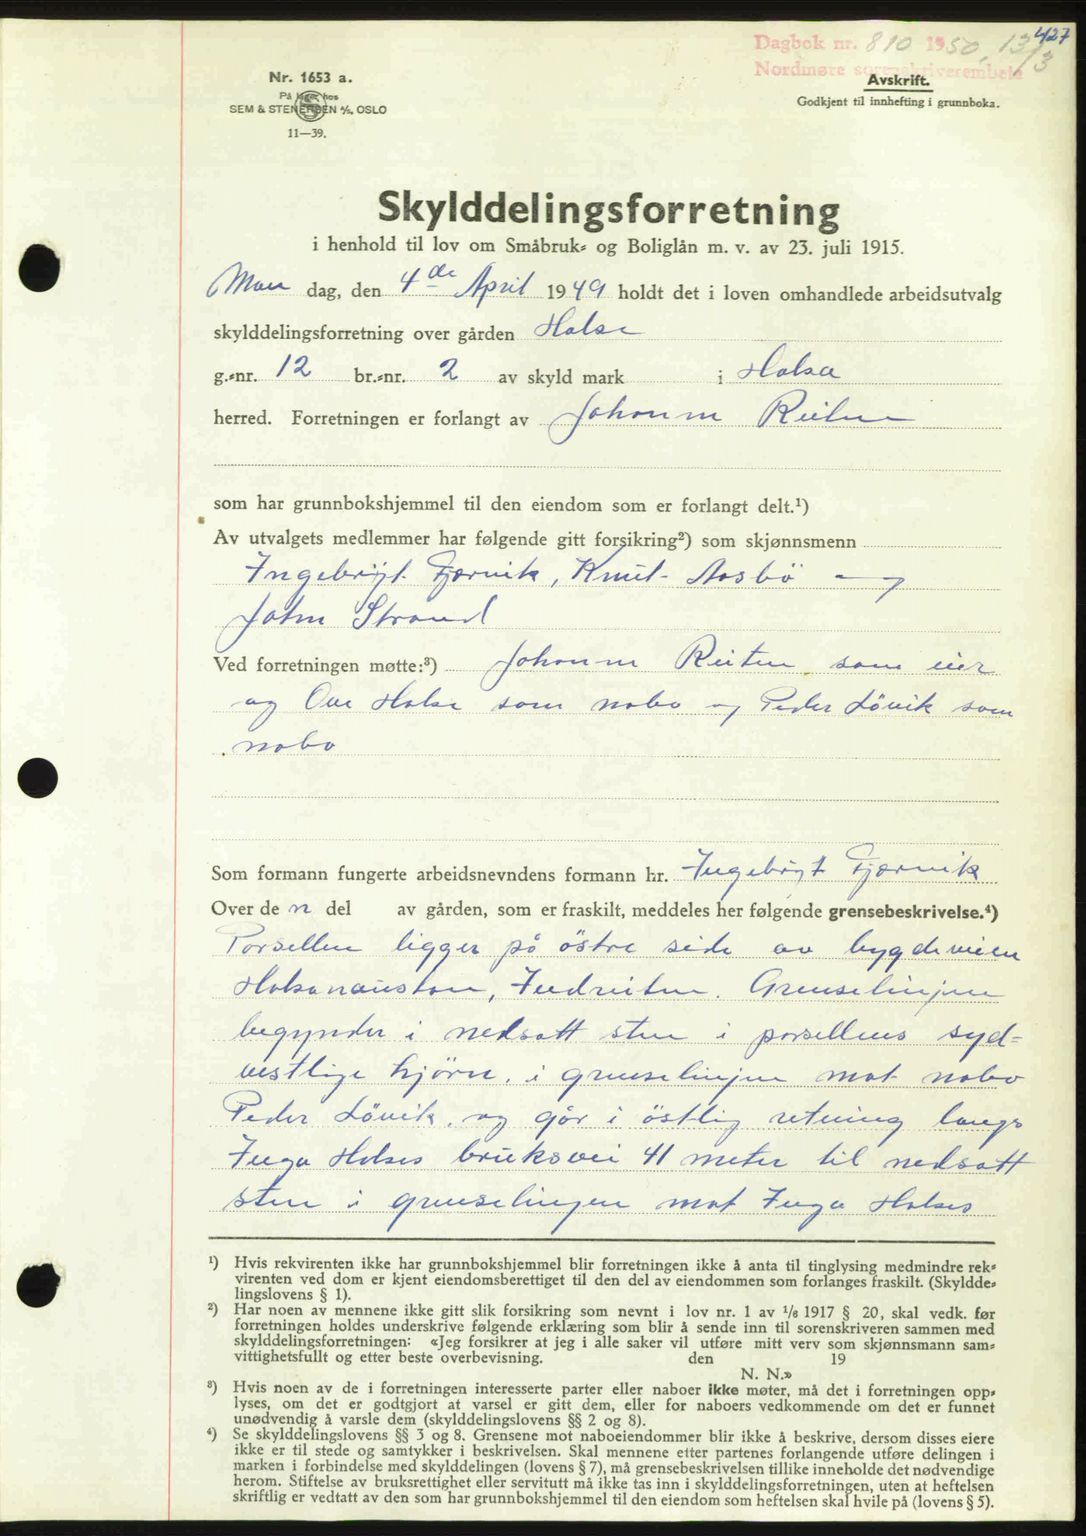 427
Dagbok nr. 810 1950, 13/3
Nordmøre sorenskriverembete
Nr. 1653 a.
På lager hos
SEM & STENERSEN A/S, OSLO
11—39.
Avskrift.
Godkjent til innhefting i grunnboka.
Skylddelingsforretning
i henhold til lov om Småbruk- og Boliglån m. v. av 23. juli 1915.
Man dag, den 4de April 1949 holdt det i loven omhandlede arbeidsutvalg
skylddelingsforretning over gården Halse
g.-nr. 12 br.-nr. 2 av skyld mark i Halsa
herred. Forretningen er forlangt av Johann Reiten
som har grunnbokshjemmel til den eiendom som er forlangt delt.¹)
Av utvalgets medlemmer har følgende gitt forsikring²) som skjønnsmenn
Ingebrigt Gjærvik, Knut Aasbö og
John Strand
Ved forretningen møtte:³) Johann Reiten som eier
og Ove Halse som nabo og Peder Lövik som
nabo
Som formann fungerte arbeidsnevndens formann hr. Ingebrigt Gjærvik
Over de n del av gården, som er fraskilt, meddeles her følgende grensebeskrivelse.⁴)
Parsellen ligger på östre side av bygdeveien
Halsanaustan, Indreiten. Grenselinjen
begynder i nedsatt sten i parsellens syd-
vestlige hjörne, i grenselinjen mot nabo
Peder Lövik, og går i östlig retning langs
Inga Halses bruksvei 41 meter til nedsatt
sten i grenselinjen mot Inga Halses
¹) Hvis rekvirenten ikke har grunnbokshjemmel blir forretningen ikke å anta til tinglysing medmindre rek-
virenten ved dom er kjent eiendomsberettiget til den del av eiendommen som forlanges fraskilt. (Skyldde-
lingslovens § 1).
²) Har noen av mennene ikke gitt slik forsikring som nevnt i lov nr. 1 av 1/6 1917 § 20, skal vedk. før
forretningen holdes underskrive følgende erklæring som blir å sende inn til sorenskriveren sammen med
skylddelingsforretningen: «Jeg forsikrer at jeg i alle saker vil utføre mitt verv som skjønnsmann sam-
vittighetsfullt og etter beste overbevisning. den 19
N. N.»
³) Hvis noen av de i forretningen interesserte parter eller naboer ikke møter, må det i forretningen opp-
lyses, om det er godtgjort at varsel er gitt dem, eller for naboers vedkommende om det er funnet
unødvendig å varsle dem (skylddelingslovens §§ 2 og 8).
⁴) Se skylddelingslovens §§ 3 og 8. Grensene mot naboeiendommer blir ikke å beskrive, dersom disses eiere
ikke er til stede og samtykker i beskrivelsen. Skal mennene etter partenes forlangende utføre delingen i
marken i forbindelse med skylddelingen (lovens § 7), må grensebeskrivelsen tillike inneholde det nødvendige
herom. Stiftelse av bruksrettighet eller servitutt må ikke tas inn i skylddelingsforretningen, uten at heftelsen
skriftlig er vedtatt av den som har grunnbokshjemmel til den eiendom som heftelsen skal hvile på (lovens § 5).